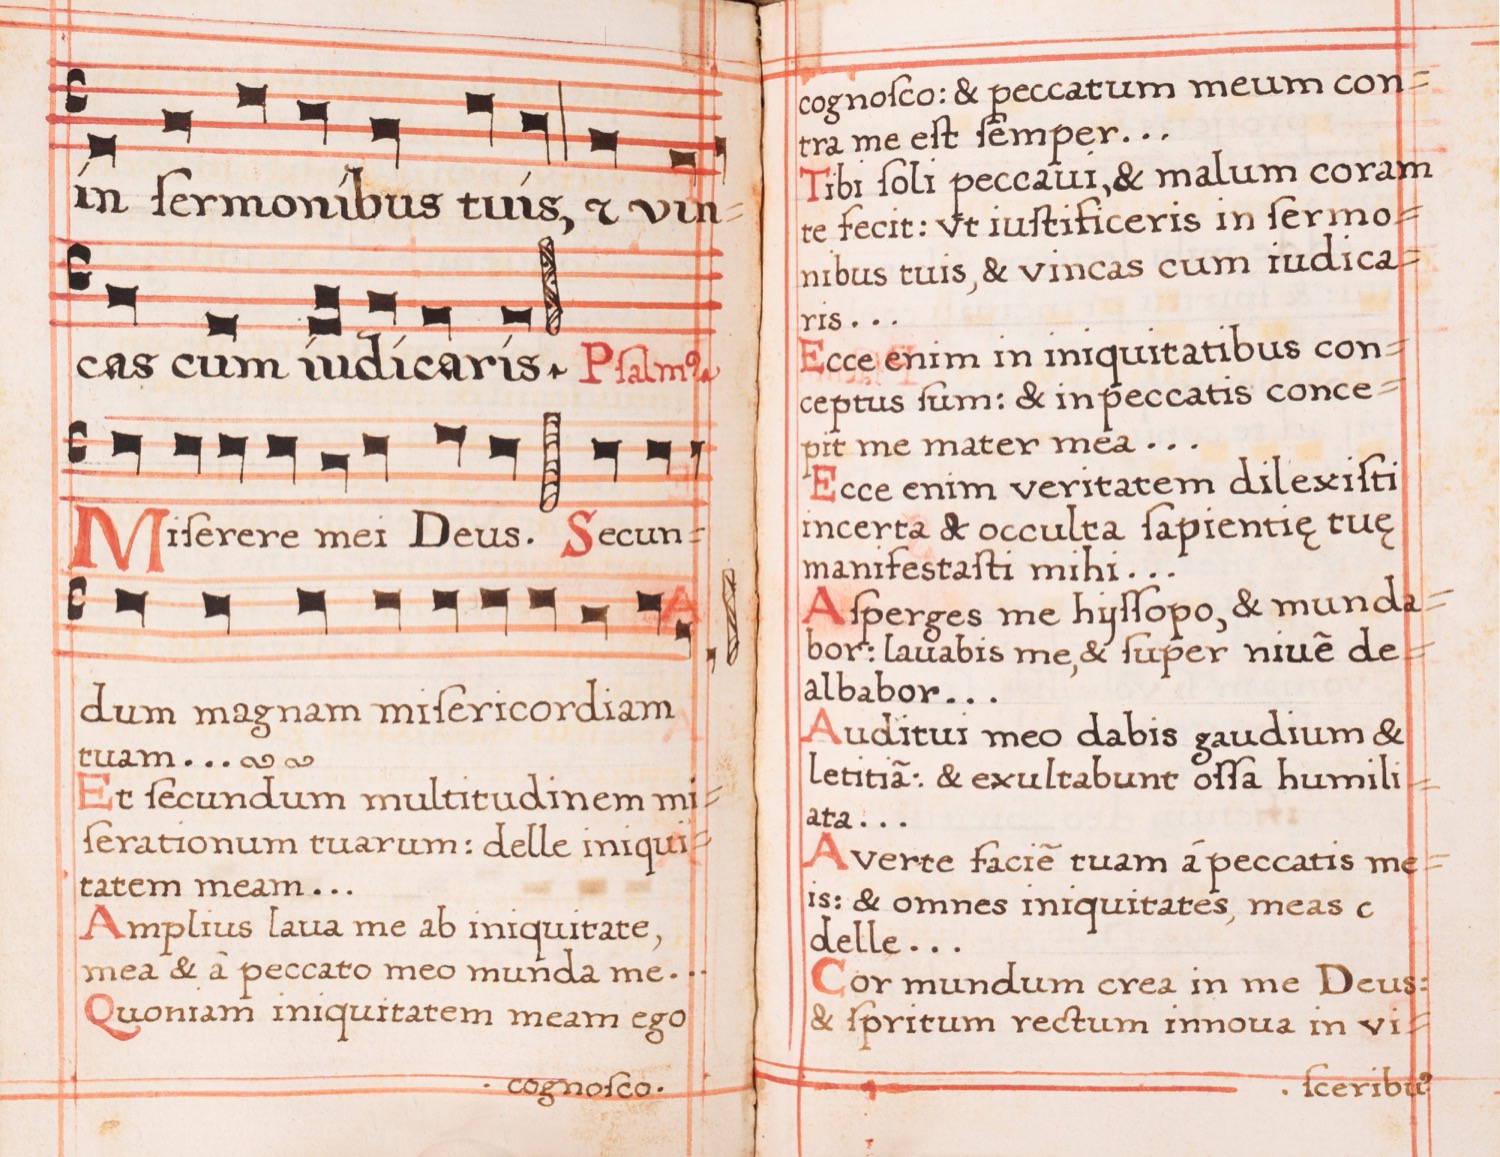 in ſermonibus tuis, ⁊ vin=
cas cum iudicaris. Pſalmꝰ.
Miſerere mei Deus. Secun=
dum magnam miſericordiam
tuam...
Et ſecundum multitudinem mi=
ſerationum tuarum: delle iniqui=
tatem meam...
Amplius laua me ab iniquitate,
mea & â peccato meo munda me...
Quoniam iniquitatem meam ego
. cognoſco.
cognoſco: & peccatum meum con=
tra me eſt ſemper...
Tibi ſoli peccaui, & malum coram
te fecit: vt iuſtificeris in ſermo=
nibus tuis, & vincas cum iudica=
ris...
Ecce enim in iniquitatibus con=
ceptus ſum: & in peccatis conce=
pit me mater mea...
Ecce enim veritatem dilexiſti
incerta & occulta ſapientię tuę
manifestaſti mihi...
Aſperges me hyſſopo, & munda=
bor: lauabis me, & ſuper niuẽ de=
albabor...
Auditui meo dabis gaudium &
letitiã: & exultabunt oſſa humili=
ata...
Auerte faciẽ tuam á peccatis me=
is: & omnes iniquitates, meas c
delle...
Cor mundum crea in me Deus:
& ſpritum rectum innoua in vi=
. ſceribuꝰ